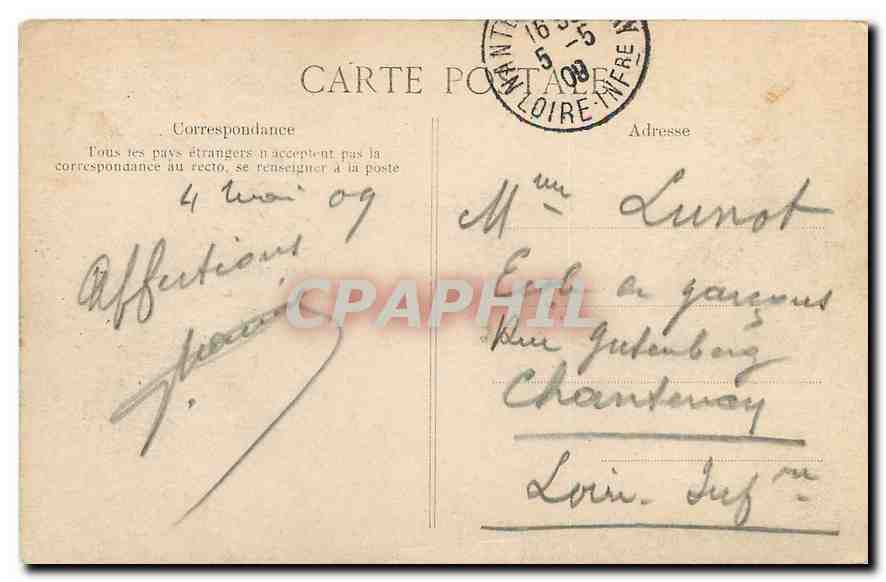 CARTE POSTALE
NANTES
16
5 - 5
09
LOIRE-INFRE
Correspondance
Tous les pays étrangers n'acceptent pas la
correspondance au recto, se renseigner à la poste
4 Mai 09
Affections
Adresse
Mme Lunot
Ecole de garçons
Rue Gutenberg
Chantenay
Loire-Infre
CPAPHIL